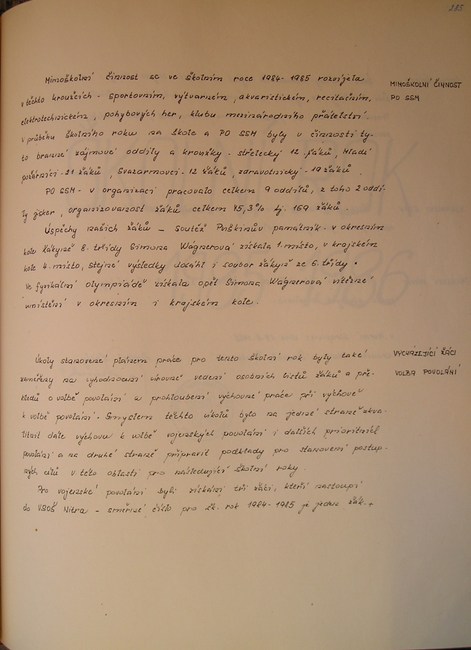 285
Mimoškolní činnost se ve školním roce 1984-1985 rozvíjela
v těchto kroužcích - sportovním, výtvarném, akvaristickém, recitačním,
elektrotechnickém, pohybových her, klubu mezinárodního přátelství.
V průběhu školního roku na škole a PO SSM byly v činnosti ty-
to branné zájmové oddíly a kroužky - střelecký 12 žáků, Mladí
požárníci - 21 žáků, Svazarmovci - 12 žáků, zdravotnický - 19 žáků.
PO SSM - v organizaci pracovalo celkem 9 oddílů, z toho 2 oddí-
ly jisker, organizovanost žáků celkem 95,3% tj. 169 žáků
Úspěchy našich žáků - Soutěž Puškinův památník - v okresním
kole žákyně 8. třídy Simona Wágnerová získala 1. místo, v krajském
kole 4. místo, stejné výsledky docílil i soubor žákyň ze 6. třídy.
Ve fyzikální olympiádě získala opět Simona Wágnerová vítězné
umístění v okresním i krajském kole.
MIMOŠKOLNÍ ČINNOST
PO SSM
Úkoly stanovené plánem práce pro tento školní rok byly také
zaměřeny na vyhodnocení úrovně vedení osobních listů žáků a pře-
hledů o volbě povolání a prohloubení výchovné práce při výchově
k volbě povolání. Smyslem těchto úkolů bylo na jedné straně zkva-
litnit dále výchovu k volbě vojenských povolání i dalších prioritních
povolání a na druhé straně připravit podklady pro stanovení postup-
ných cílů v této oblasti pro následující školní roky.
Pro vojenské povolání byli získáni tři žáci, kteří nastoupí
do VSOŠ Nitra - směrné číslo pro šk. rok 1984-1985 je jeden žák.
VYCHÁZEJÍCÍ ŽÁCI
VOLBA POVOLÁNÍ